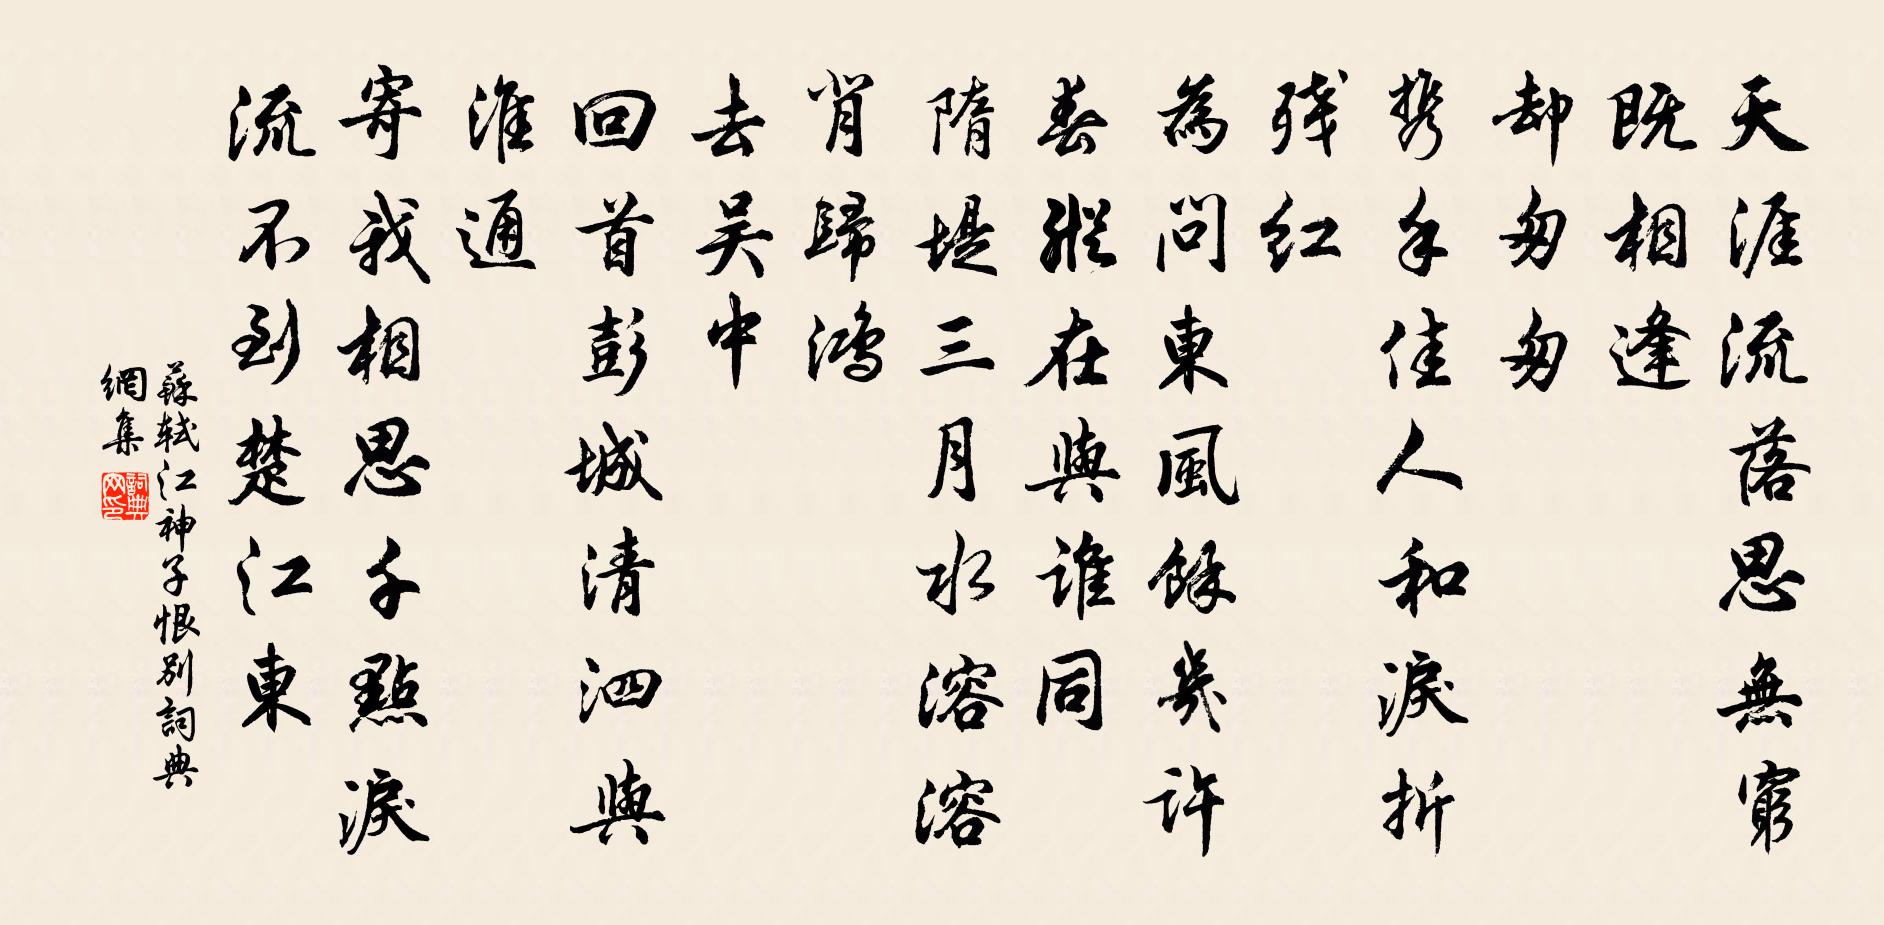 天涯流落思無窮
既相逢
却匆匆
携手佳人和淚折
残红
為問東風餘幾許
春縱在與誰同
隋堤三月水溶溶
背歸鴻
去吴中
回首彭城清泗與
淮通
寄我相思千點淚
流不到楚江東
蘇軾江神子恨别詞典
網集
詞典网印